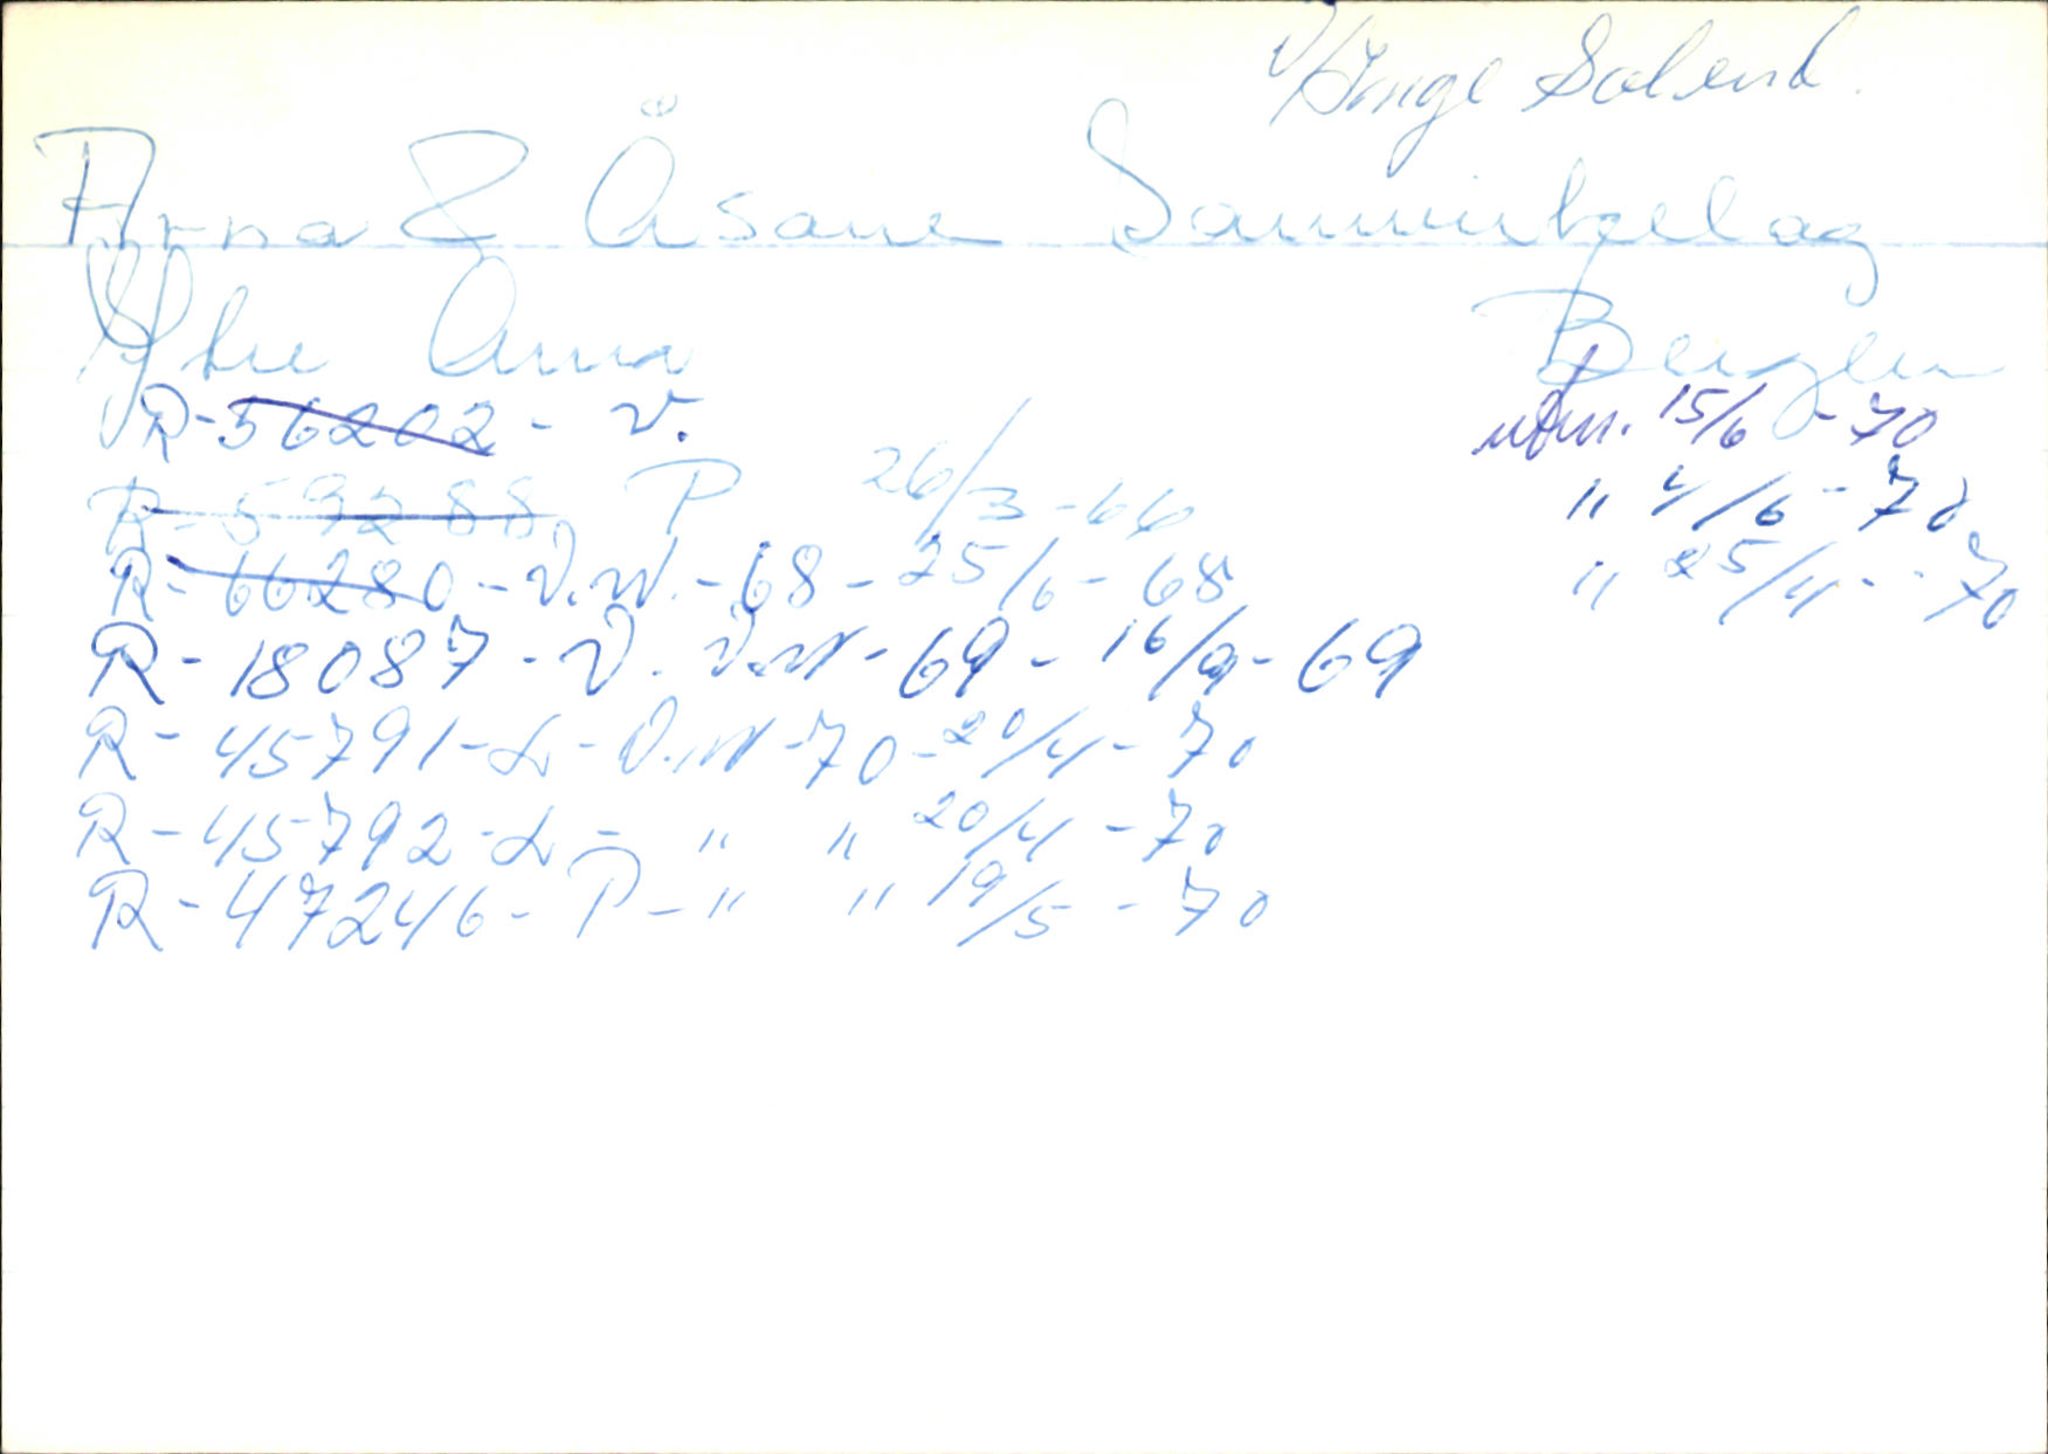 v/Inge Solend.
Arna & Åsane Sammenbgelag
Ytre Arna Bergen
R-56202 - V. utm. 15/6 - 70
R-59288 P 26/3-66 " 4/6 - 70
R-66280 - V.W. - 68 - 25/6 - 68 " 25/4 - - 70
R - 18087 - V. V.W - 69 - 16/9 - 69
R - 45791 - L - V.W - 70 - 20/4 - 70
R - 45792 - L - " " 20/4 - 70
R - 47246 - P - " " 19/5 - 70